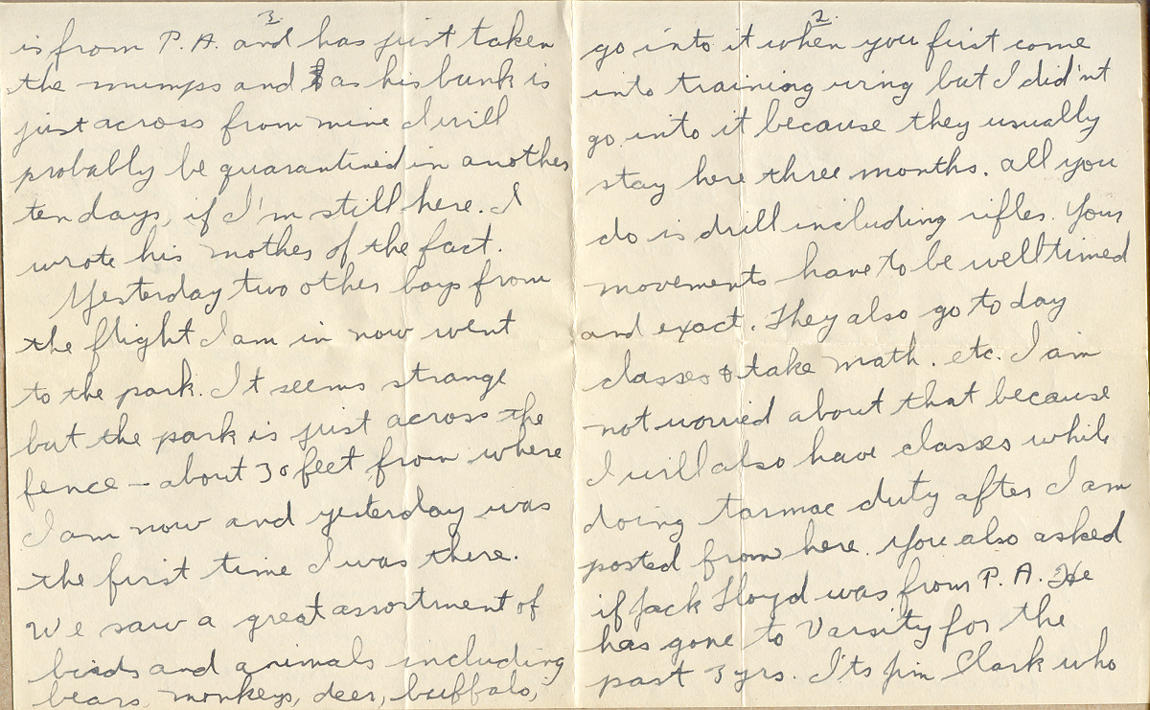 2.
go into it when you first come
into training wing but I did'nt
go into it because they usually
stay here three months. all you
do is drill including rifles. Your
movements have to be welltimed
and exact. They also go to day
classes & take math. etc. I am
not worried about that because
I will also have classes while
doing tarmac duty after I am
posted from here. You also asked
if Jack Lloyd was from P. A. He
has gone to Varsity for the
past 3 yrs. Its Jim Clark who
3.
is from P. A. and has just taken
the mumps and as his bunk is
just across from mine I will
probably be quarantined in another
ten days, if I'm still here. I
wrote his mother of the fact.
Yesterday two other boys from
the flight I am in now went
to the park. It seems strange
but the park is just across the
fence – about 30 feet from where
I am now and yesterday was
the first time I was there.
We saw a great assortment of
birds and animals including
bears, monkeys, deer, buffalo,